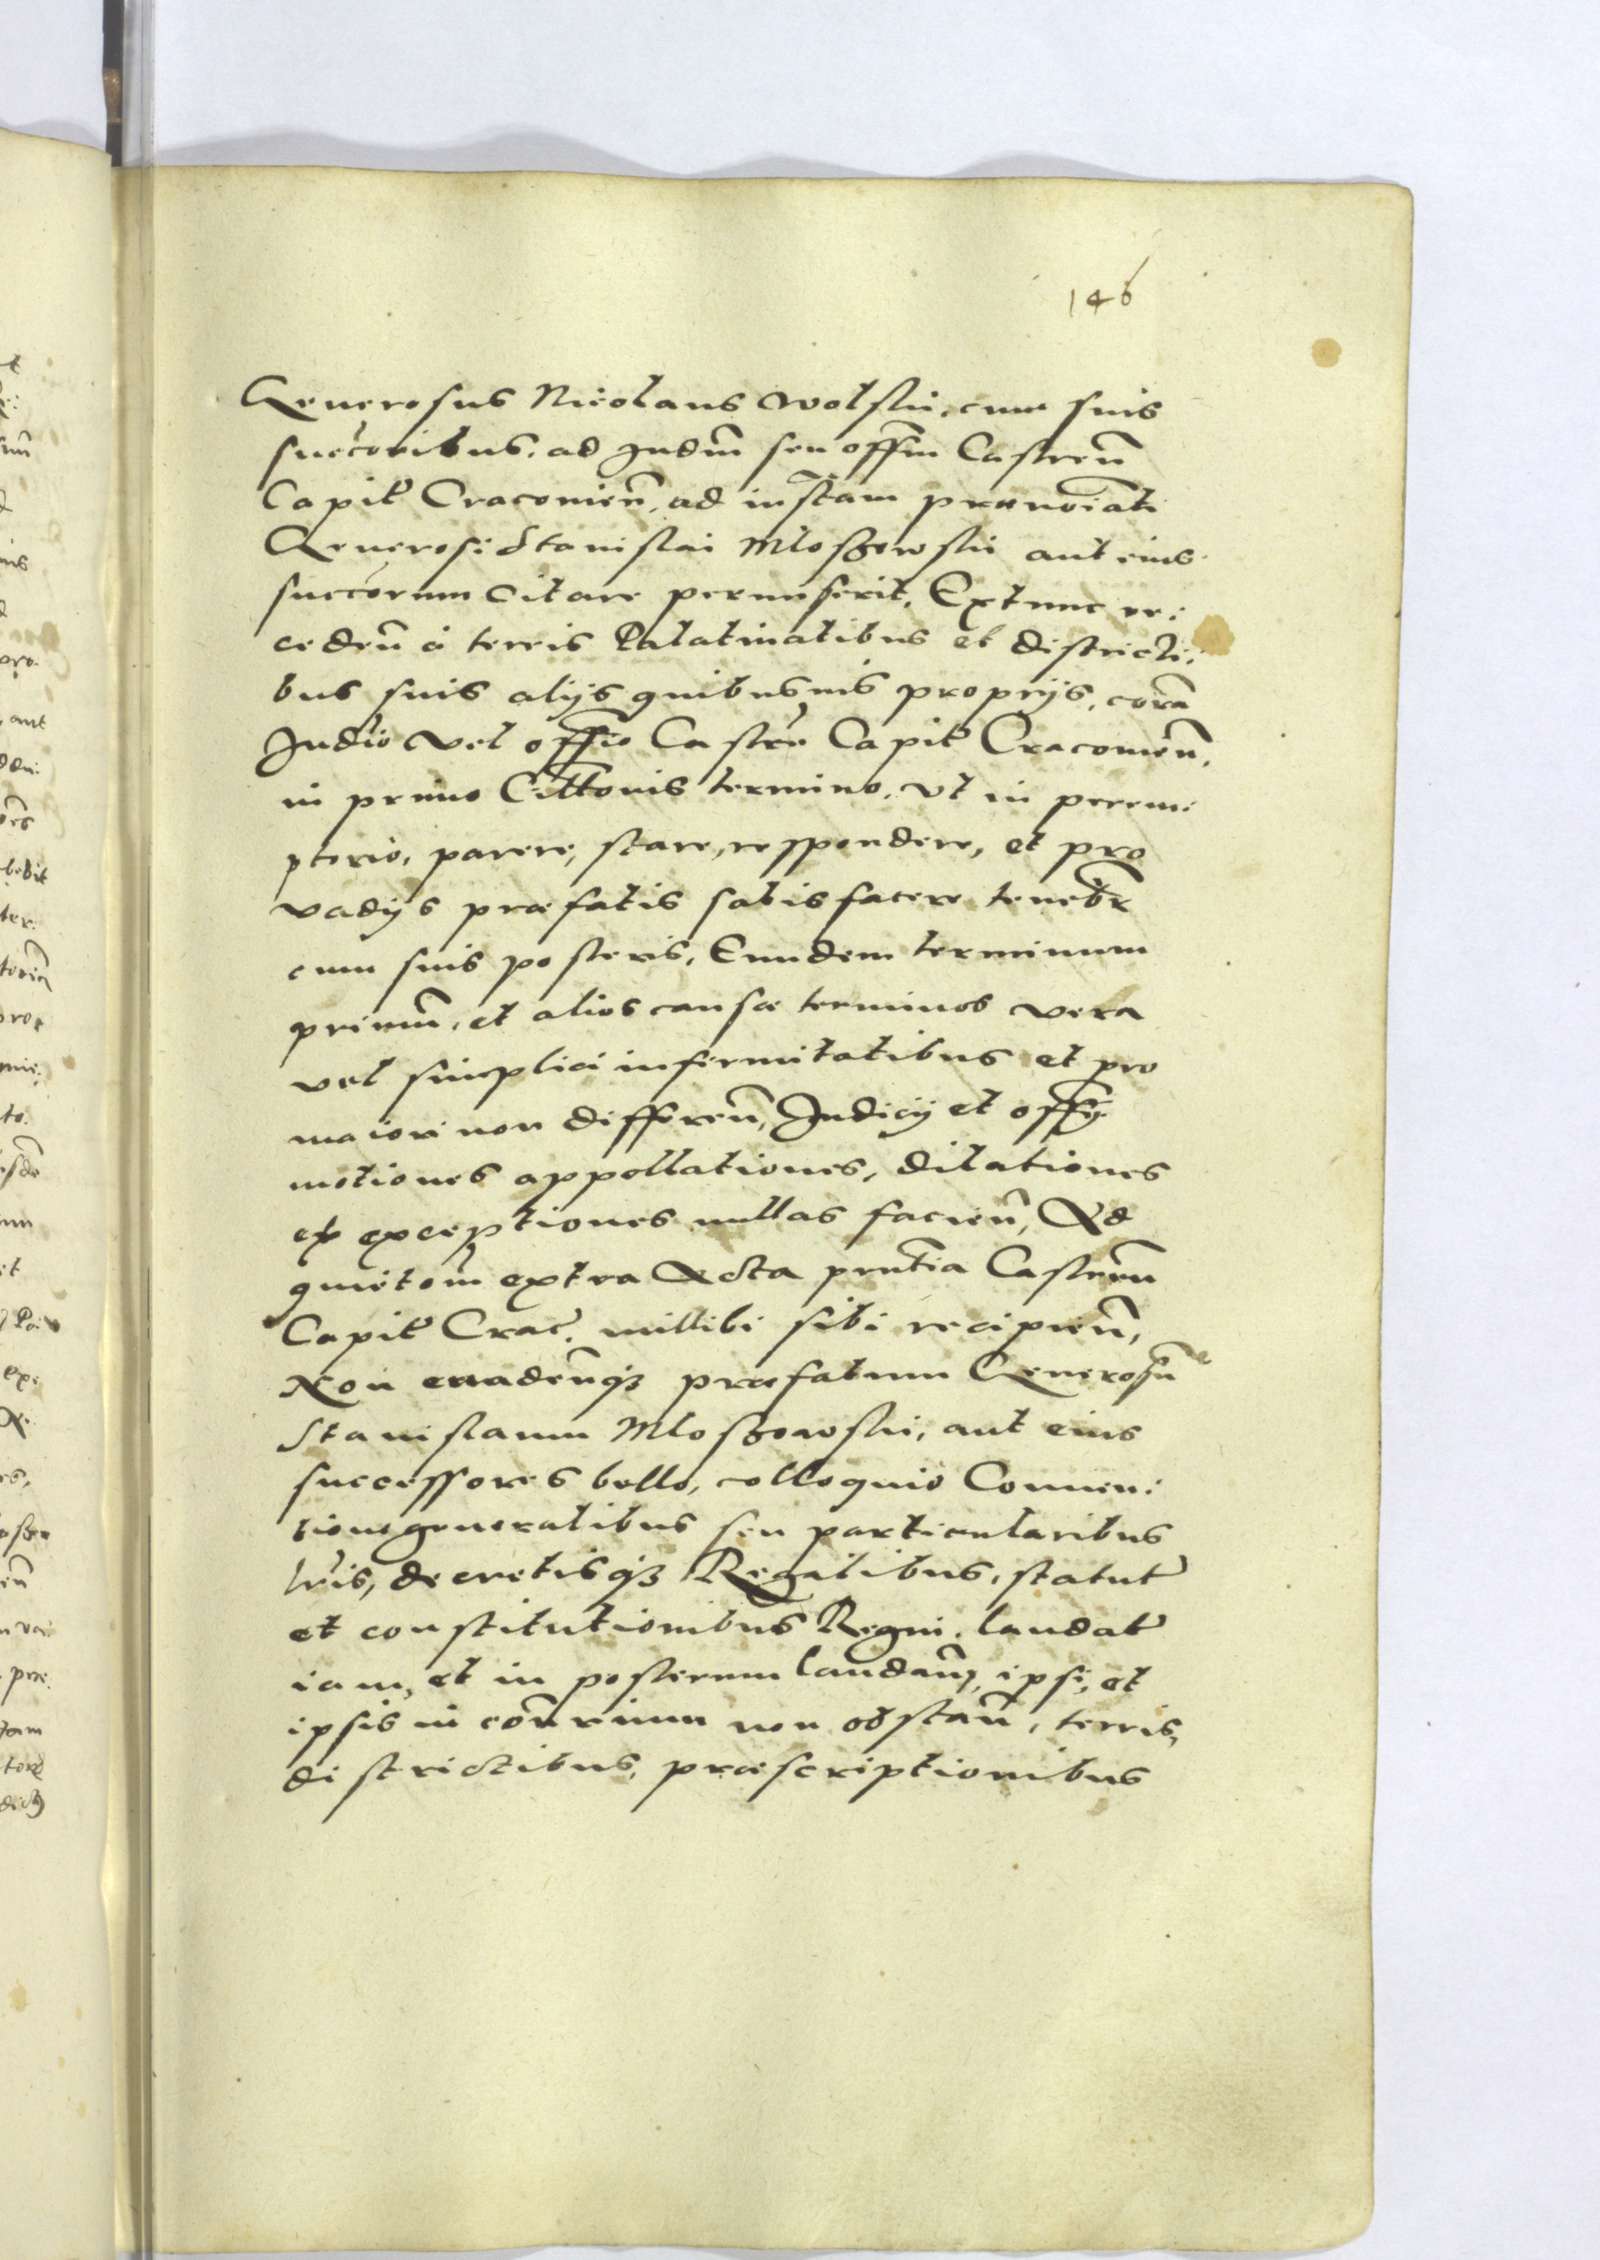 146
Generosus Nicolaus Wolskii, cum suis
succoribus, ad Iudm̃ seu offm̃ Castren̄
Capit̃ Cracouien̄, ad instam̃ prænoĩati
Generosi Stanislai Mloszowskii aut eius
succorum citare permiserit, Extunc re:
ceden̄ à terris Palatinatibus et districti:
bus suis alijs quibusuis proprijs, corã
Iudio vel offio Castrẽ Capit̃ Cracouien̄,
in primo Citt̃onis termino, vt in perem:
ptorio, parere, stare, respondere, et pro
vadijs præfatis satisfacere tenebr̃
cum suis posteris, Eundem terminum
primũ, et alios causæ terminos vera
vel simplici infirmitatibus et pro
maiori non differen̄, Iudicij et offij
motiones appellationes, dilationes
et exceptiones nullas facien̄, Ad
quietom̃ extra Acta prñtia Castren̄
Capit̃ Crac̃. nullibi sibi recipien̄,
Non euaden̄q3 præfatum Generosũ
Stanislaum Mloszowskii, aut eius
successores bello, colloquio Conuen:
tione generalibus seu particularibus
lr̃is, decretisq3 Regalibus, statut̃
et constitutionibus Regni, laudat̃
iam, et in posterum laudan̄, ipsi, et
ipsis in conr̃rium non obstan̄, terris,
districtibus, præscriptionibus